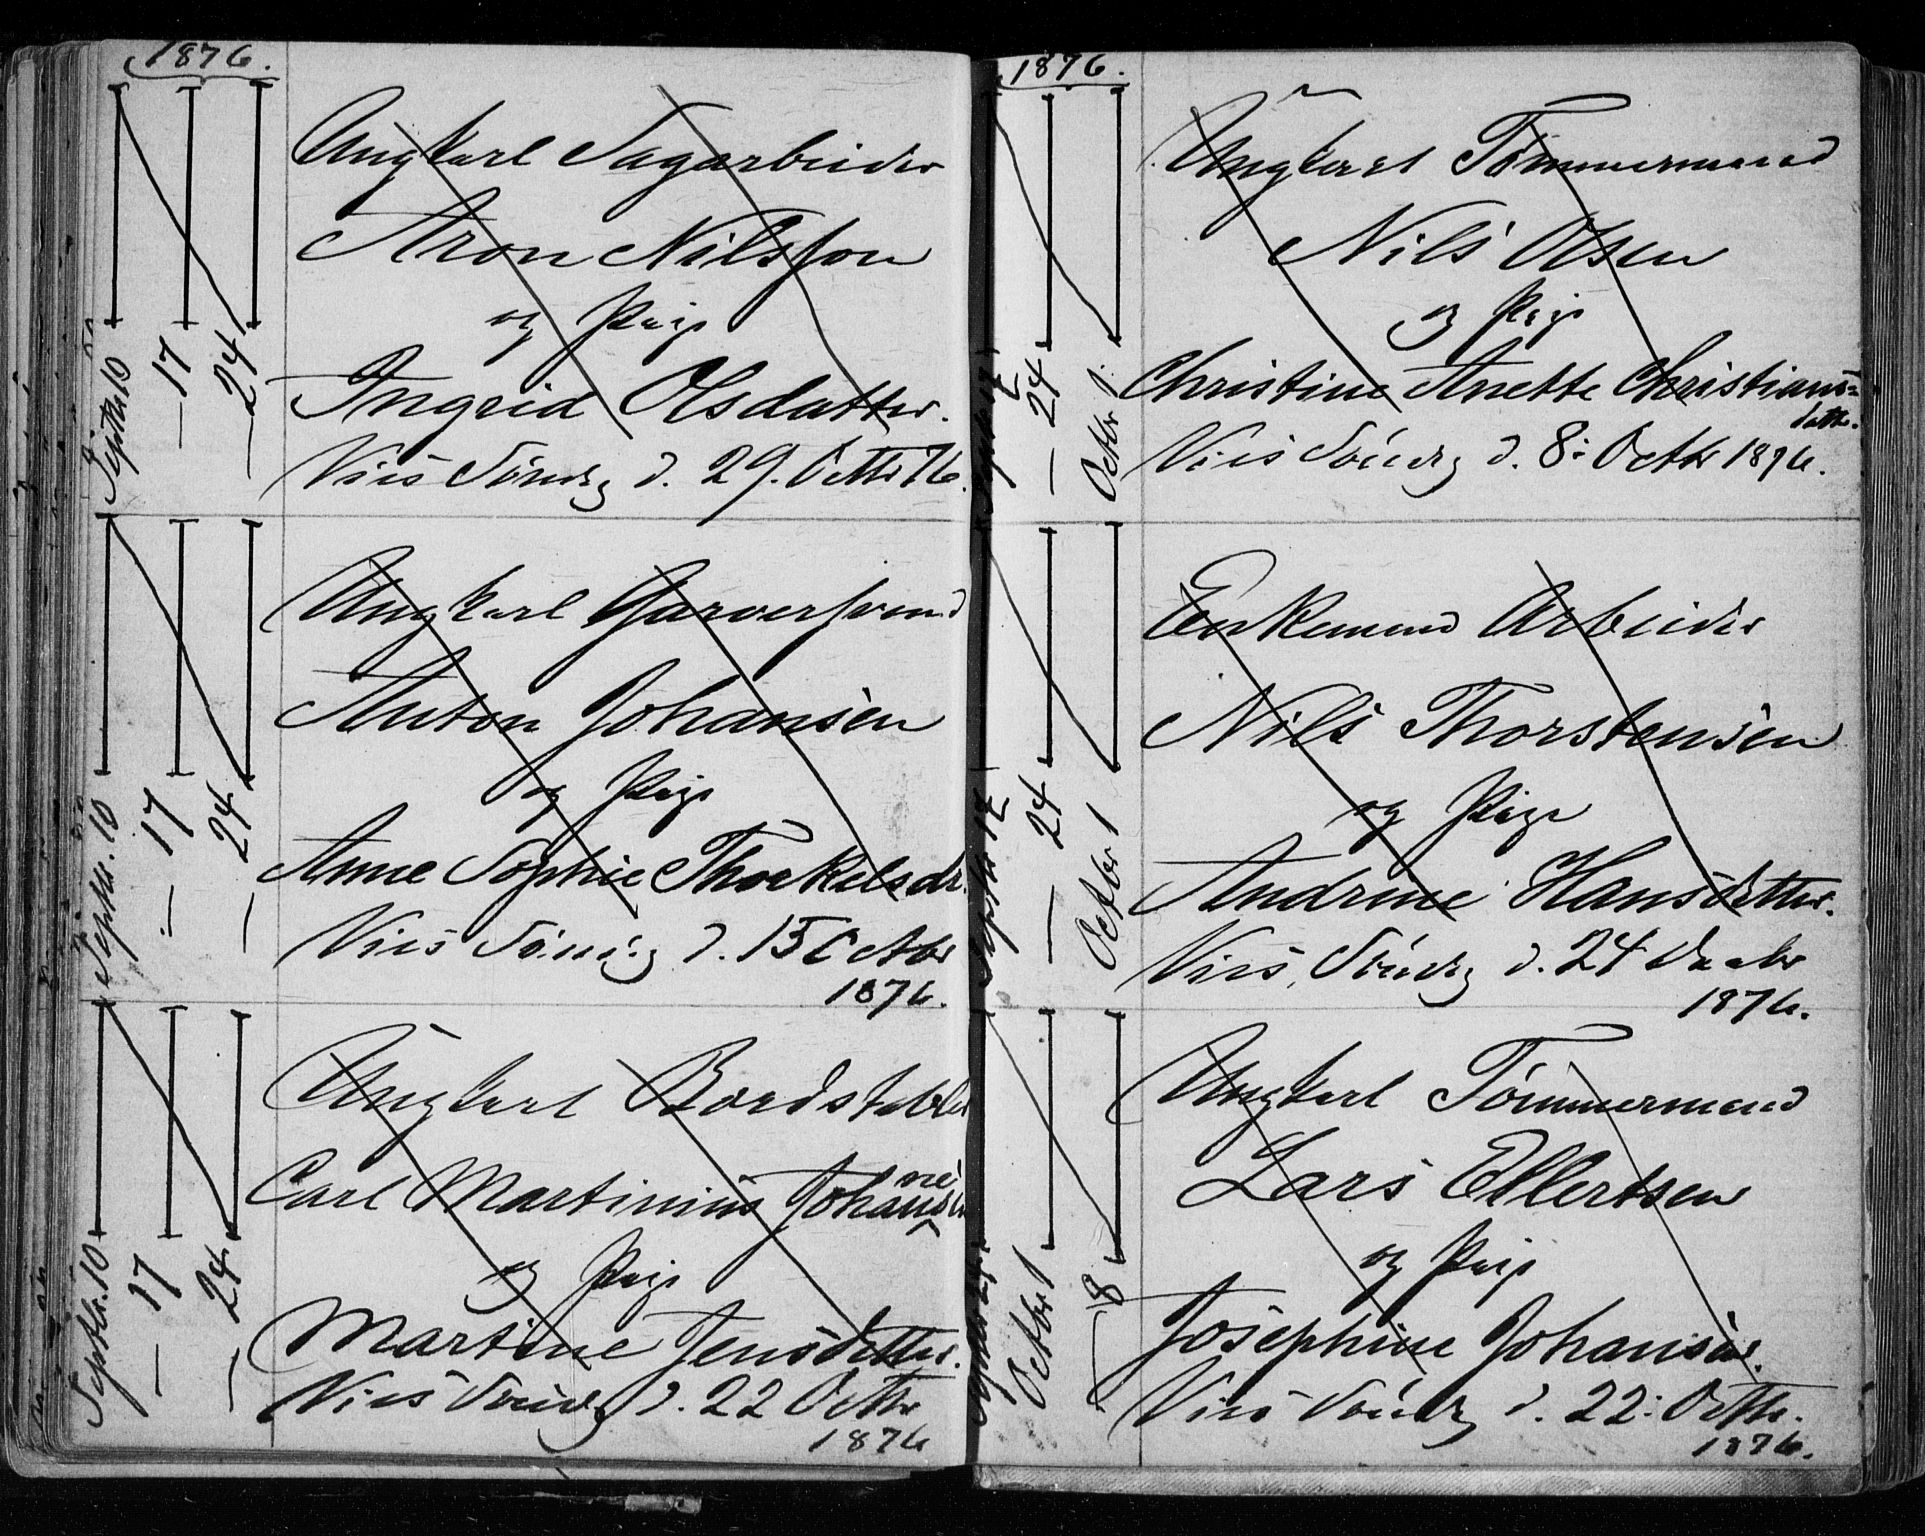 1876.
Septbr. 10
— 17
— 24
Ungkarl Sagarbeider
Aron Nilsson
og Pige
Ingrid Olsdatter.
Vies Søndag d. 29. Octbr 76.
Septbr. 10
— 17
— 24
Ungkarl Garversvend
Anton Johansen
og Pige
Anne Sophie Thorkelsdr.
Vies Søndag d. 15 Octbr
1876.
Septbr. 10
— 17
— 24
Ungkarl
Carl Martinius
og Pige
Martine Jensdatter.
Vies Søndag d. 22 Octbr
1876
1876.
Septbr 17
— 24
Octbr 1.
Ungkarl Tømmermand
Nils Olsen
og Pige
Christine Anette Christians=
datter.
Vies Søndag d. 8: Octbr 1876.
Septbr 17
— 24
Octbr 1
Enkemand Arbeider
Nils Thorstensen
og Pige
Andrine Hansdatter.
Vies Søndag d. 24 Decbr
1876.
Septbr 24
Octbr 1
— 8
Ungkarl Tømmermand
Lars Ellertsen
og Pige
Josephine Johansen.
Vies Søndag d. 22: Octbr.
1876.